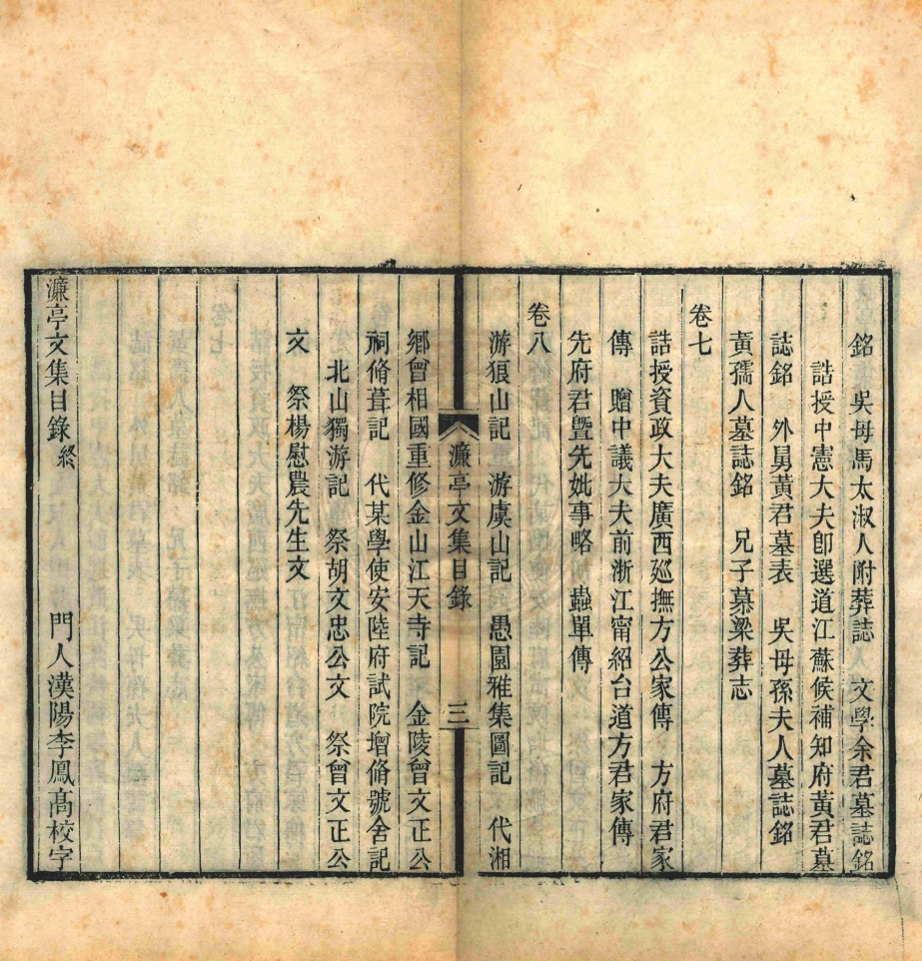 銘　吳母馬太淑人附葬誌　文學余君墓誌銘
誥授中憲大夫卽選道江蘇候補知府黃君墓
誌銘　外舅黃君墓表　吳母孫夫人墓誌銘
黃孺人墓誌銘　兄子慕梁葬志
卷七
誥授資政大夫廣西廵撫方公家傳　方府君家
傳　贈中議大夫前浙江甯紹台道方君家傳
先府君暨先妣事略　蟲單傳
卷八
游狼山記　游虞山記　愚園雅集圖記　代湘
濂亭文集目錄　三
鄉曾相國重修金山江天寺記　金陵曾文正公
祠脩葺記　代某學使安陸府試院增脩號舍記
北山獨游記　祭胡文忠公文　祭曾文正公
文　祭楊慰農先生文
濂亭文集目錄終　門人漢陽李鳳高校字